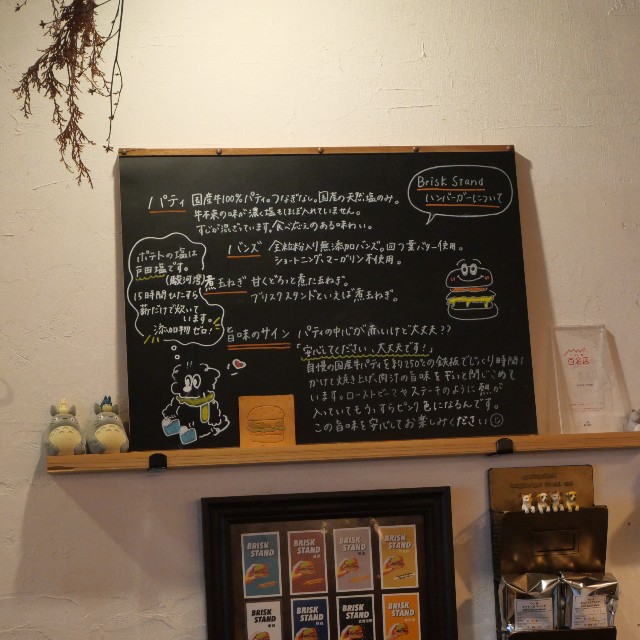 Brisk Stand
ハンバーガーについて
パティ 国産牛100%パティ。つなぎなし。国産の天然塩のみ。
牛本来の味が濃く塩もほぼ入れていません。
すじが混ざっています。食べごたえのある味わい。
バンズ 全粒粉入り無添加バンズ。四つ葉バター使用。
ショートニング、マーガリン不使用。
煮玉ねぎ 甘くどろっと煮た玉ねぎ。
ブリスクスタンドといえば煮玉ねぎ。
ポテトの塩は
戸田塩です。
(駿河湾)
15時間ひたすら
薪だけで炊いて
います。
添加物ゼロ!
旨味のサイン パティの中心が赤いけど大丈夫??
「安心してください、大丈夫です!」
自慢の国産牛パティを約250℃の鉄板でじっくり時間を
かけて焼き上げ、肉汁の旨味をギュッと閉じこめて
います。ローストビーフやステーキのように熱が
入っていてもうっすらピンク色になるんです。
この旨味を安心してお楽しみください
百名店
BRISK
STAND
BRISK
STAND
BRISK
STAND
BRISK
STAND
BRISK
STAND
BRISK
STAND
BRISK
STAND
BRISK
STAND